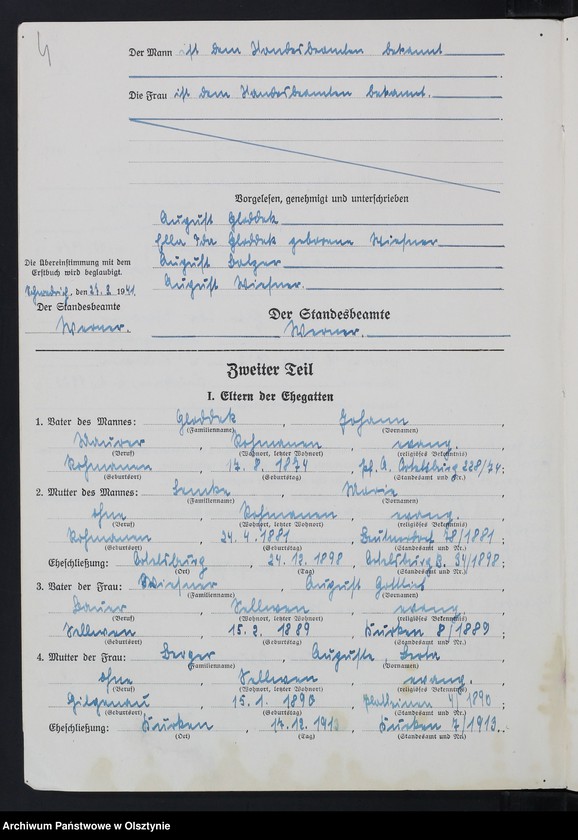 4
Der Mann ist dem Standesbeamten bekannt
Die Frau ist dem Standesbeamten bekannt.
Vorgelesen, genehmigt und unterschrieben
August Gloddek
Ella Ida Gloddek geborene Wiesner
August
August Wiesner.
Die Übereinstimmung mit dem
Erstbuch wird beglaubigt.
den 1941
Der Standesbeamte
Werner.
Der Standesbeamte
Werner.
Zweiter Teil
I. Eltern der Ehegatten
1. Vater des Mannes: Gloddek, Johann,
(Familienname) (Vornamen)
Maurer, Rohmanen, evang.
(Beruf) (Wohnort, letzter Wohnort) (religiöses Bekenntnis)
Rohmanen, 17. 8. 1874, Ortelsburg 228/74;
(Geburtsort) (Geburtstag) (Standesamt und Nr.)
2. Mutter des Mannes: Lemke, Marie,
(Familienname) (Vornamen)
ohne, Rohmanen, evang.
(Beruf) (Wohnort, letzter Wohnort) (religiöses Bekenntnis)
Rohmanen, 24. 4. 1881, 78/1881;
(Geburtsort) (Geburtstag) (Standesamt und Nr.)
Eheschließung: Ortelsburg, 24. 12. 1898, Ortelsburg 34/1898;
(Ort) (Tag) (Standesamt und Nr.)
3. Vater der Frau: Wiesner, August Gottlieb,
(Familienname) (Vornamen)
Bauer, Sellwen, evang.
(Beruf) (Wohnort, letzter Wohnort) (religiöses Bekenntnis)
Sellwen, 15. 2. 1889, Kurken 8/1889;
(Geburtsort) (Geburtstag) (Standesamt und Nr.)
4. Mutter der Frau: Berger, Auguste Berta,
(Familienname) (Vornamen)
ohne, Sellwen, evang.
(Beruf) (Wohnort, letzter Wohnort) (religiöses Bekenntnis)
Gilgenau, 15. 1. 1890, 4/1890;
(Geburtsort) (Geburtstag) (Standesamt und Nr.)
Eheschließung: Kurken, 17. 12. 1913, Kurken 7/1913.
(Ort) (Tag) (Standesamt und Nr.)
Archiwum Państwowe w Olsztynie